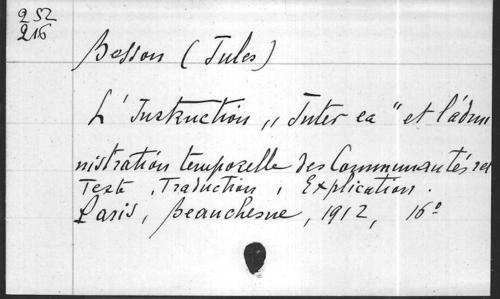 252
216
Besson (Jules)
L'Instruction „Inter ea" et l'admi
nistration temporelle des Communautés rel
Texte, Traduction, Explication.
Paris, Beauchesne, 1912, 16º